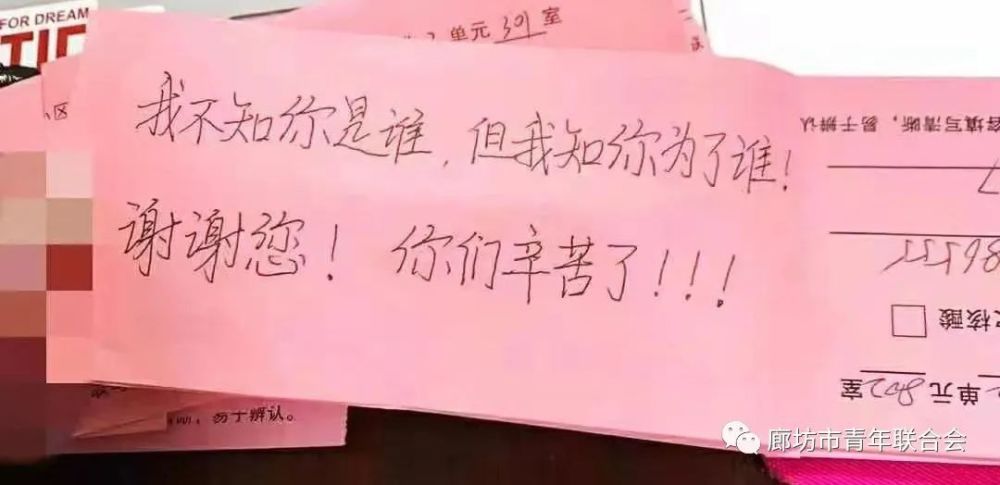 FOR DREAM
单元301室
区
我不知你是谁，但我知你为了谁！
谢谢您！你们辛苦了！！！
填写清晰，易于辨认
核酸
单元802室
易于辨认。
廊坊市青年联合会